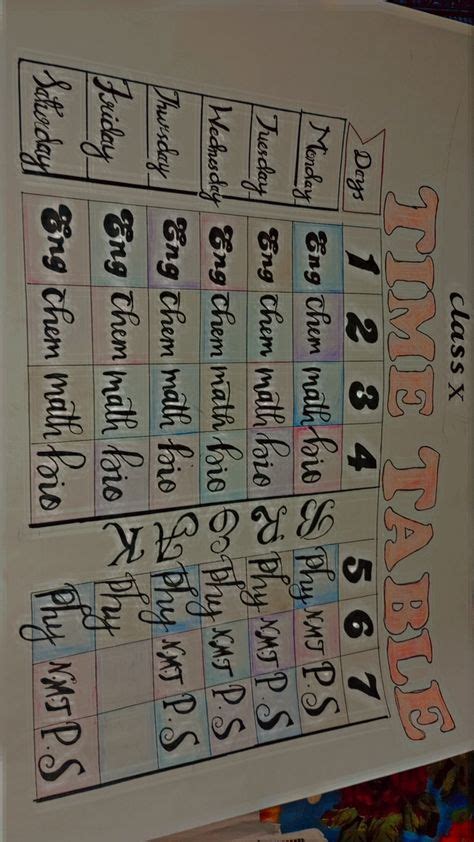 Class X
TIME TABLE
Days 1 2 3 4 5 6 7
Monday Eng Chem math bio B Phy NMT P.S
Tuesday Eng Chem math bio R Phy NMT P.S
Wednesday Eng Chem math bio E Phy NMT P.S
Thursday Eng Chem math bio A Phy NMT P.S
Friday Eng Chem math bio K Phy
Saturday Eng Chem math bio Phy NMT P.S